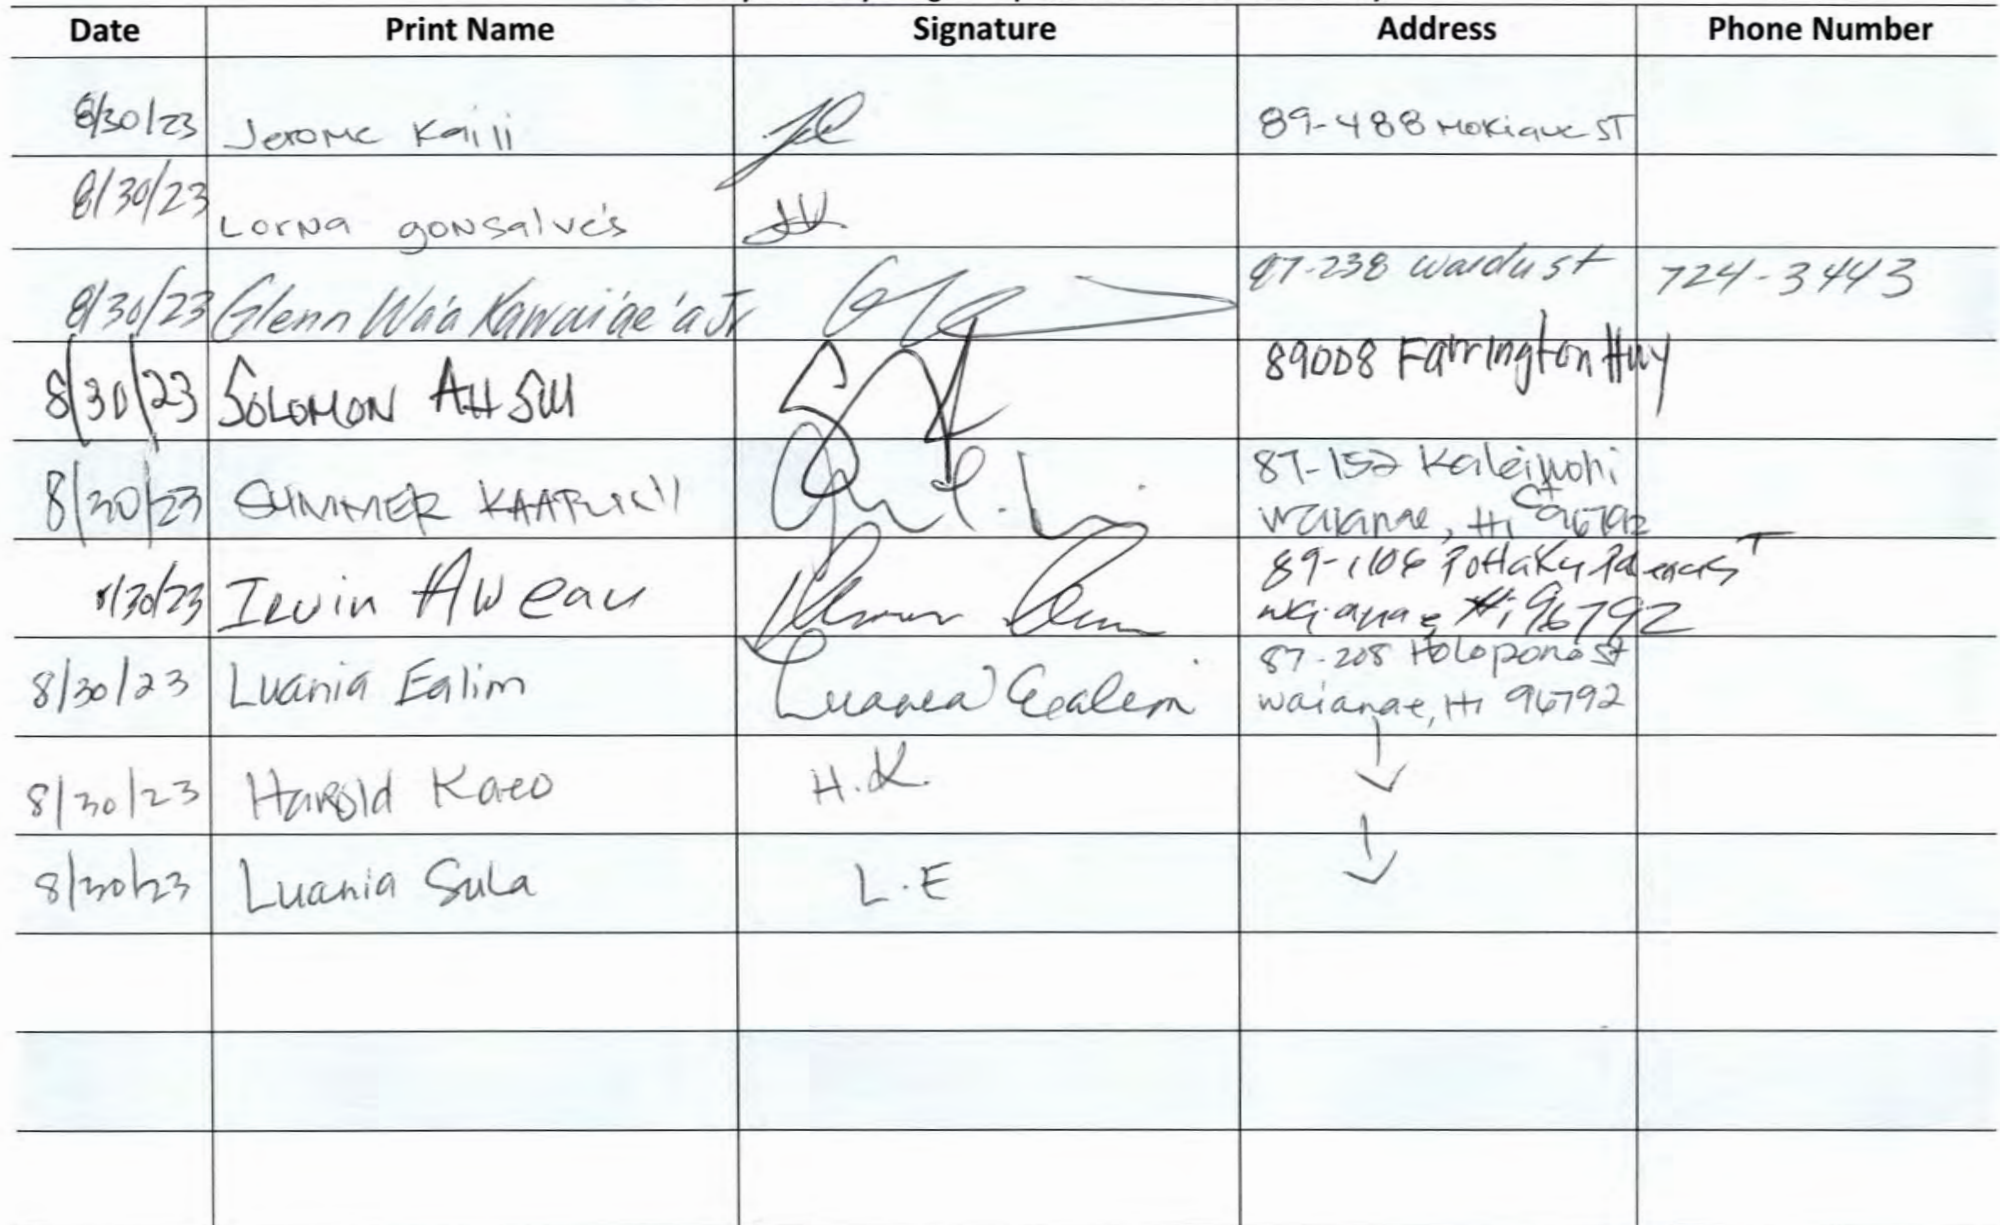 Date Print Name Signature Address Phone Number
8/30/23 Jerome Kaili 89-488 Mokiawe ST
8/30/23 Lorna gonsalve's
8/30/23 Glenn Wa'a Kawai'ae'a Jr 87-238 st 724-3443
8/30/23 SOLOMON AH SUI 89008 Farrington Hwy
8/30/23 SUMMER 87-152 Kaleiwohi
St
Waianae, HI 96792
8/30/23 Irvin AWeau 89-1106
waianae Hi 96792
8/30/23 Luania Ealim Luania Ealim 87-208 Holopono st
waianae, HI 96792
8/30/23 Harold Kaeo H.K.
8/30/23 Luania Sula L.E